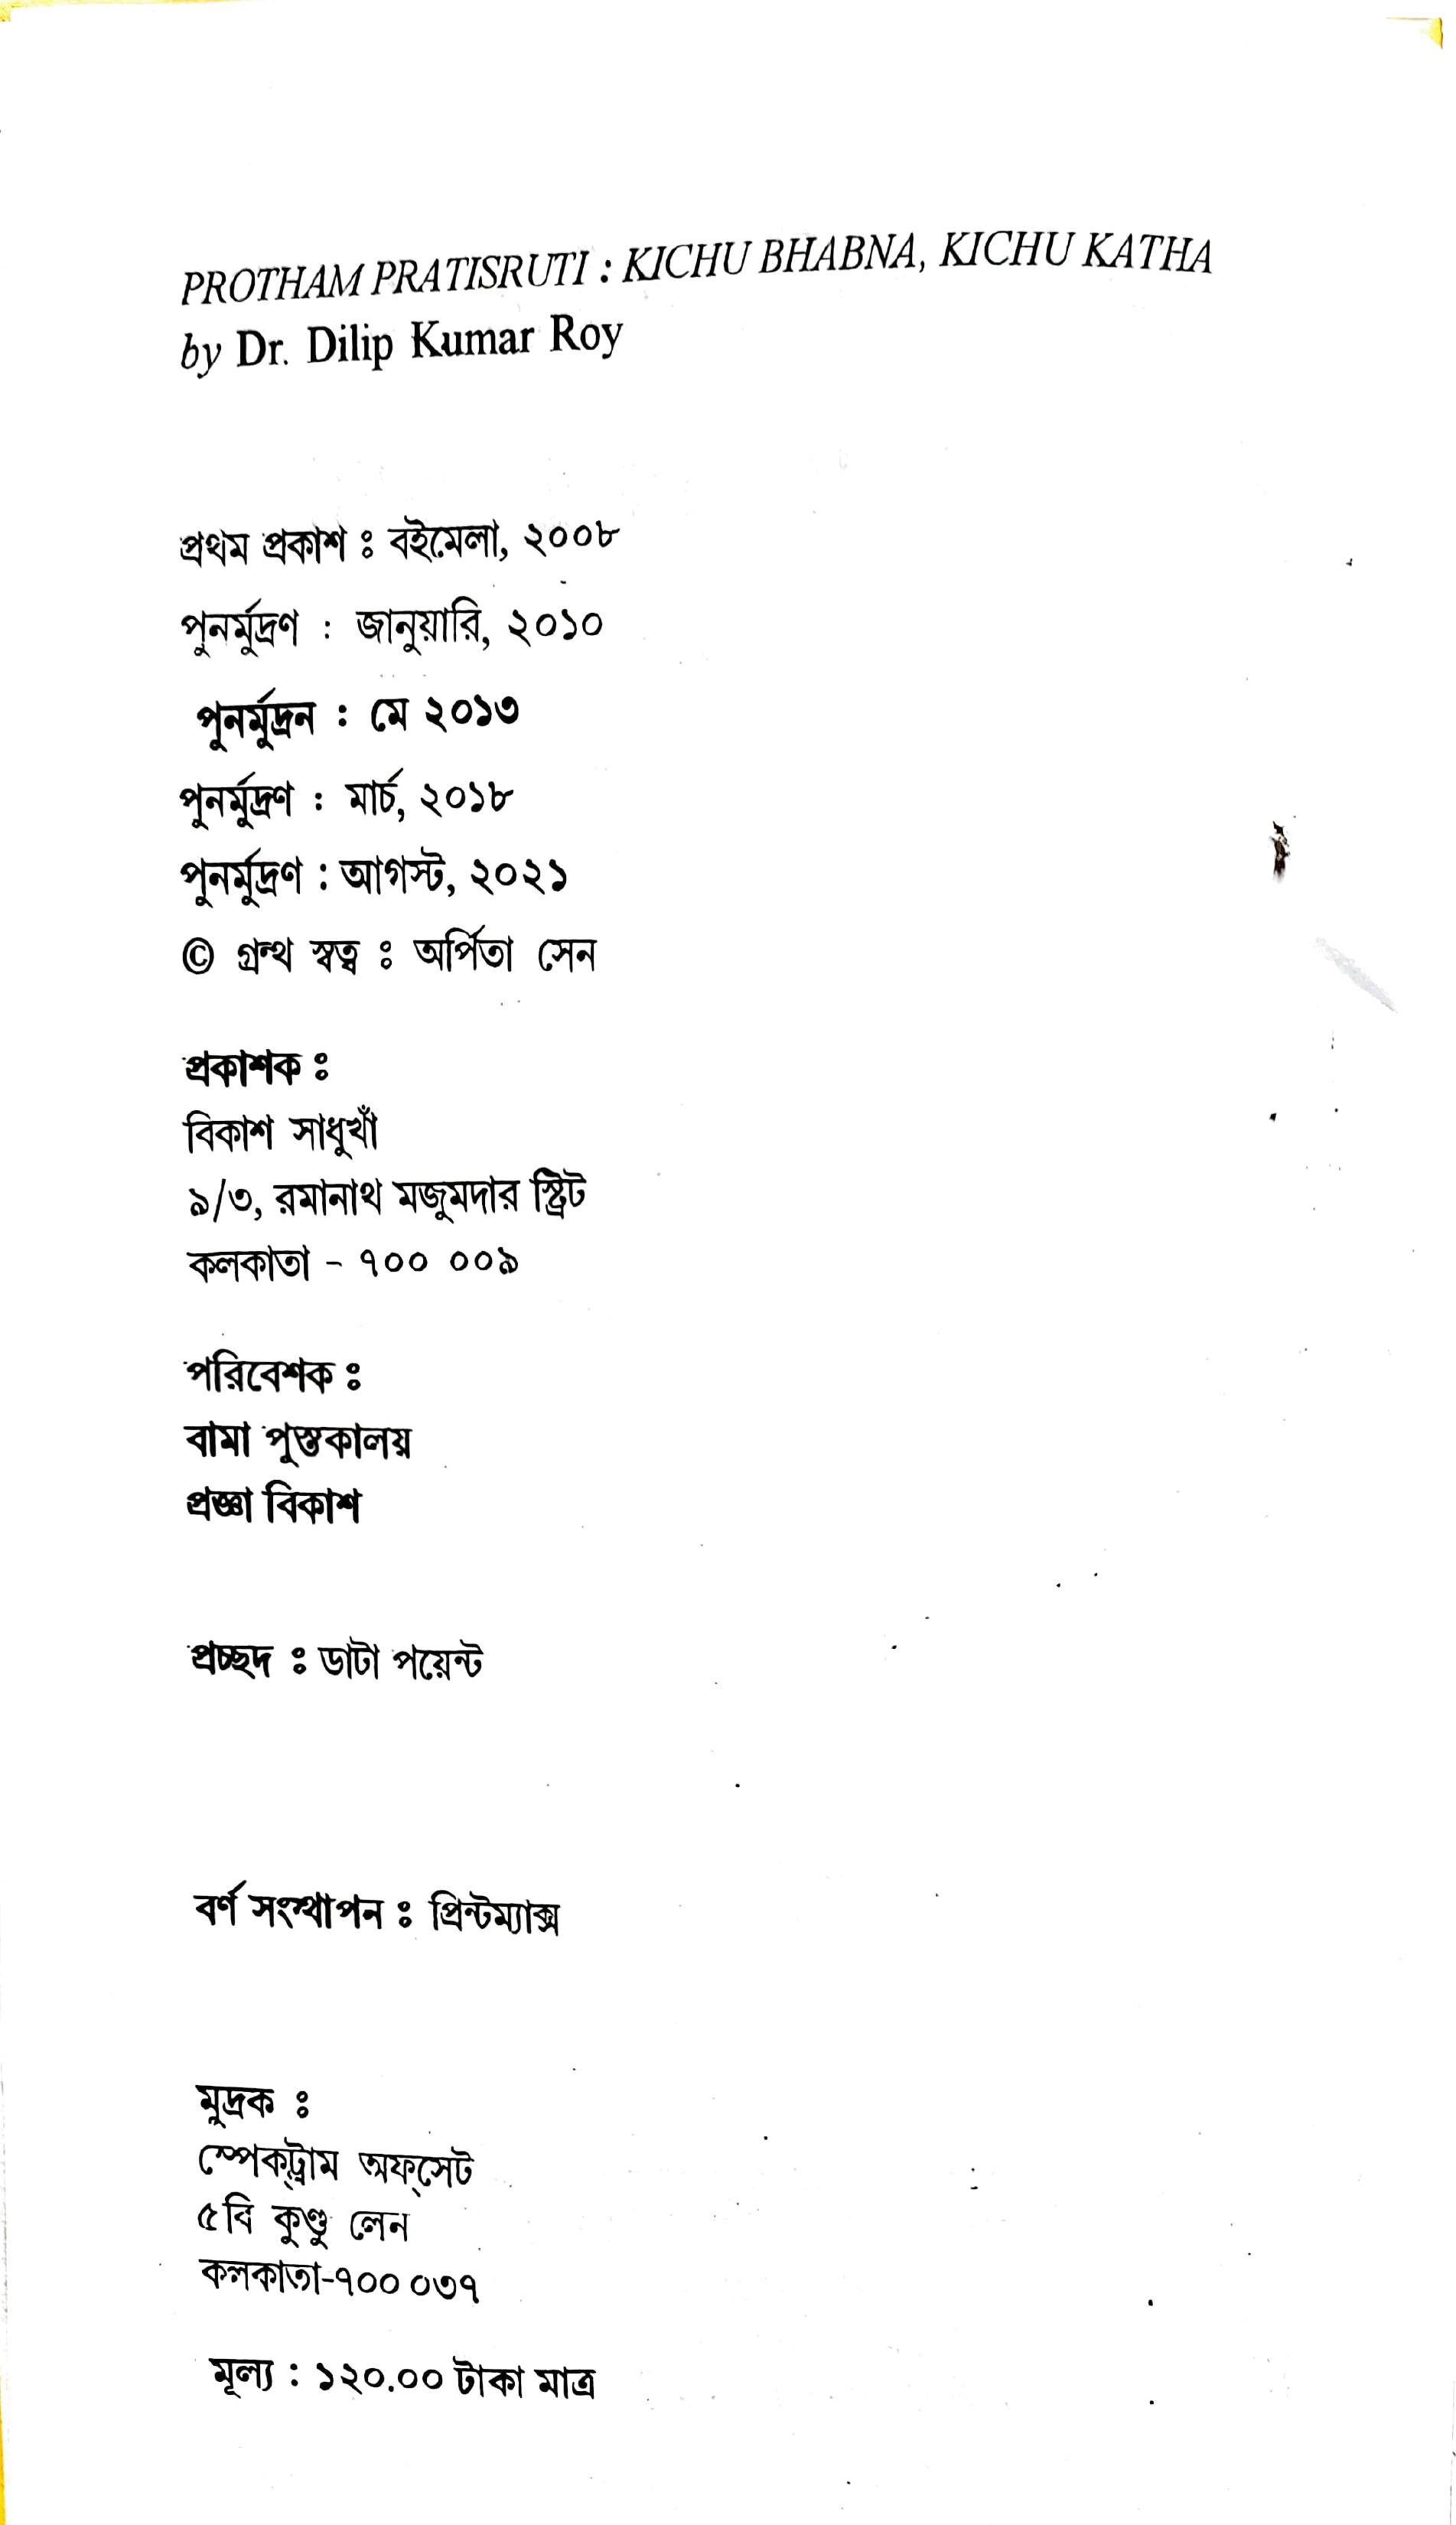 PROTHAM PRATISRUTI : KICHU BHABNA, KICHU KATHA
by Dr. Dilip Kumar Roy
প্রথম প্রকাশ ঃ বইমেলা, ২০০৮
পুনর্মুদ্রণ : জানুয়ারি, ২০১০
পুনর্মুদ্রন : মে ২০১৩
পুনর্মুদ্রণ : মার্চ, ২০১৮
পুনর্মুদ্রণ : আগস্ট, ২০২১
© গ্রন্থ স্বত্ব ঃ অর্পিতা সেন
প্রকাশক ঃ
বিকাশ সাধুখাঁ
৯/৩, রমানাথ মজুমদার স্ট্রিট
কলকাতা - ৭০০ ০০৯
পরিবেশক ঃ
বামা পুস্তকালয়
প্রজ্ঞা বিকাশ
প্রচ্ছদ ঃ ডাটা পয়েন্ট
বর্ণ সংস্থাপন ঃ প্রিন্টম্যাক্স
মুদ্রক ঃ
স্পেক্ট্রাম অফ্‌সেট
৫বি কুণ্ডু লেন
কলকাতা-৭০০ ০৩৭
মূল্য : ১২০.০০ টাকা মাত্র